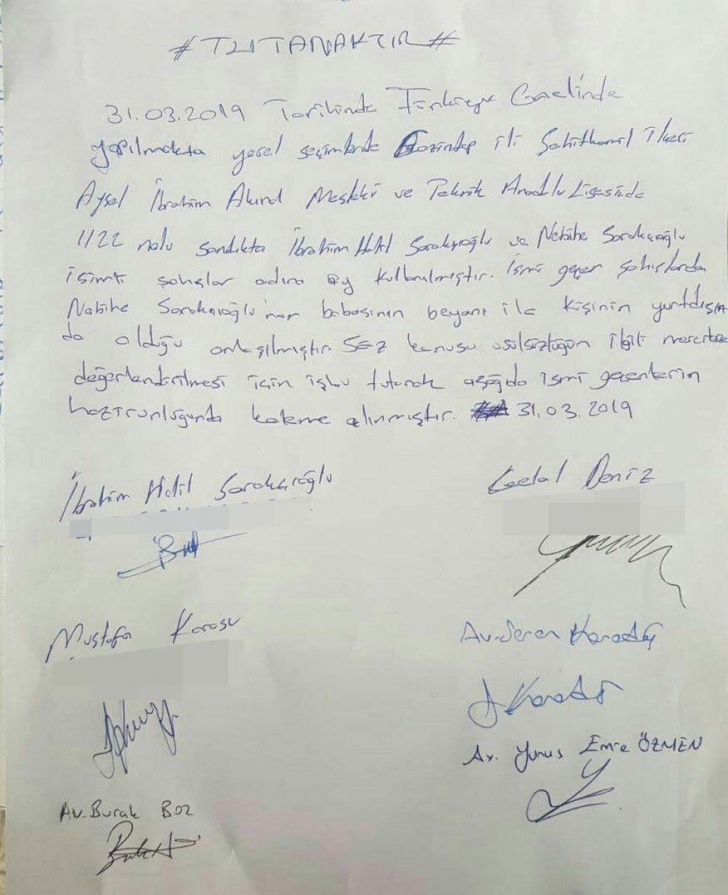 #TUTANAKTIR#
31.03.2019 Tarihinde Türkiye Genelinde
yapılmakta yerel seçimlerde Gaziantep ili Şehitkamil ilçesi
Aysel İbrahim Akınal Mesleki ve Teknik Anadolu Lisesinde
1122 nolu sandıkta İbrahim Halil Sarokçıoğlu ve Nebihe Sarokçıoğlu
isimli şahıslar adına oy kullanılmıştır. İsmi geçen şahıslardan
Nebihe Sarokçıoğlu'nun babasının beyanı ile kişinin yurtdışın
da olduğu anlaşılmıştır. Söz konusu usulsüzlüğün ilgili mercilerce
değerlendirilmesi için işbu tutanak aşağıda ismi geçenlerin
hazirunluğunda kaleme alınmıştır. 31.03.2019
İbrahim Halil Sarokçıoğlu
Deniz
Mustafa Karasu
Av. Karadağ
Av. Yunus Emre ÖZMEN
Av. Burak BOZ